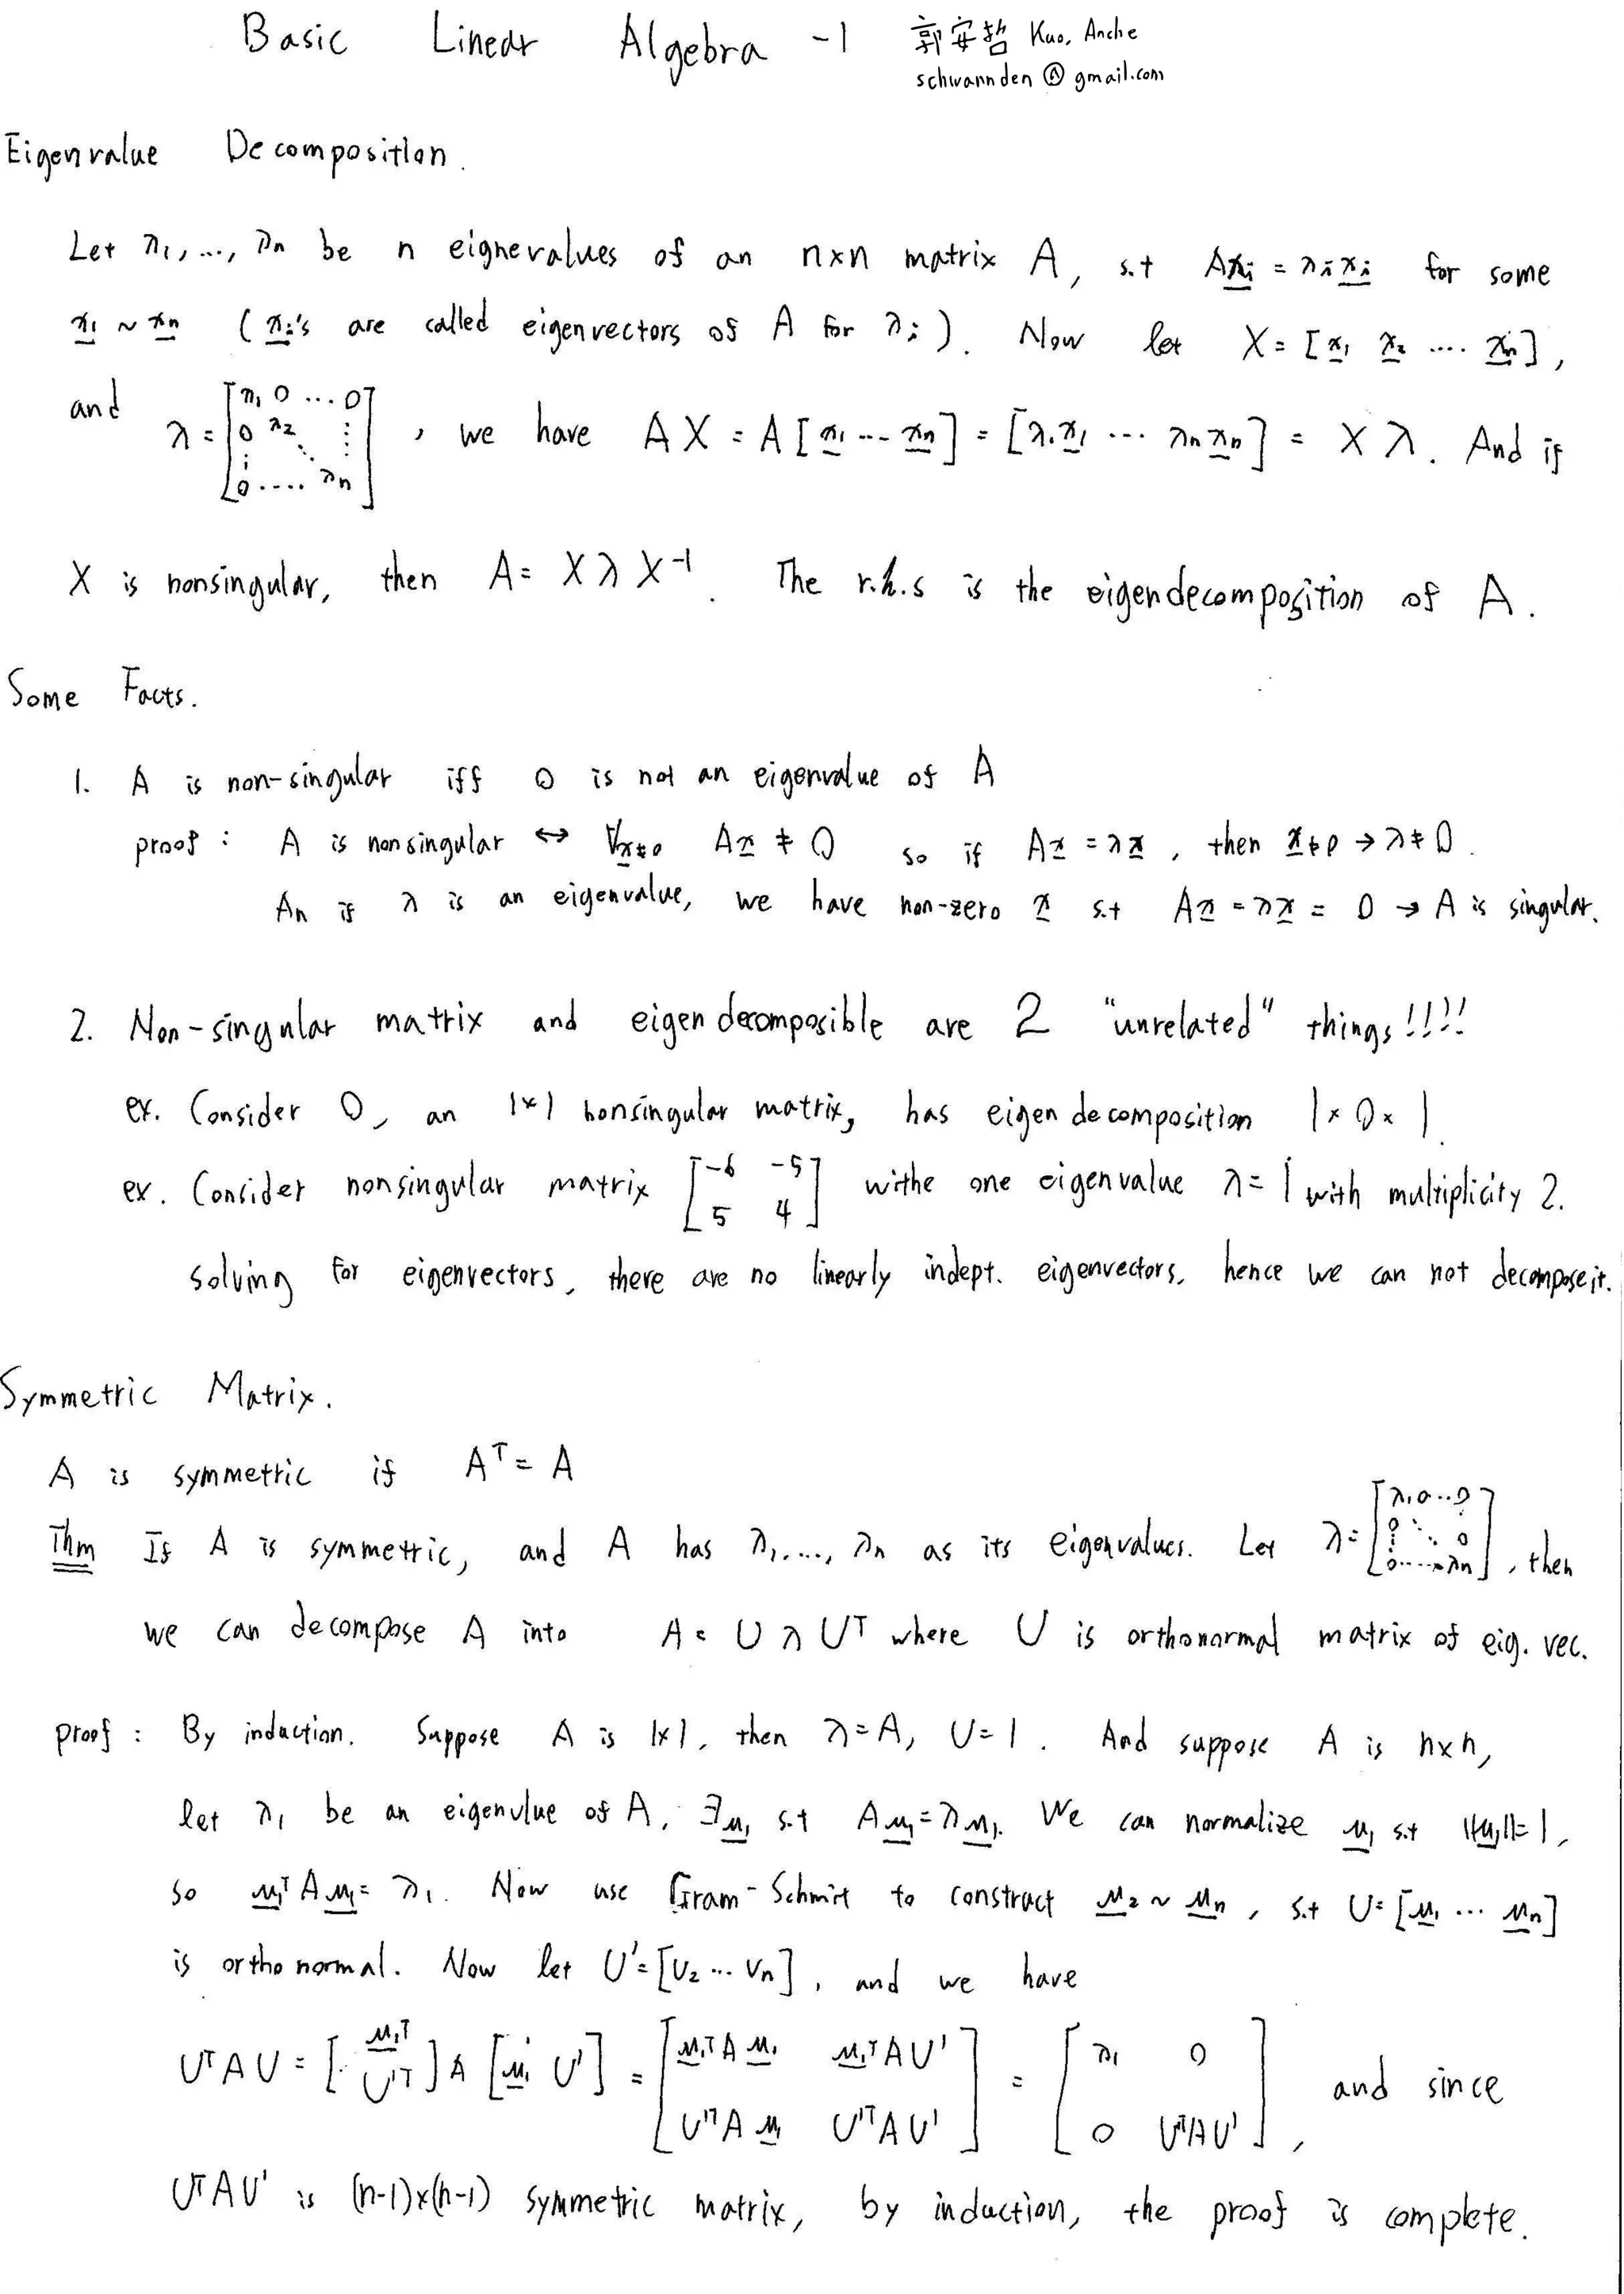 Basic Linear Algebra -1 郭安哲 Kuo, Anche
schwannden @ gmail.com
Eigenvalue Decomposition.
Let λ1, ..., λn be n eignevalues of an n×n matrix A, s.t Axi = λixi for some
x1 ~ xn (xi's are called eigenvectors of A for λi). Now let X = [x1 x2 .... xn],
and λ = [λ1 0 ... 0; 0 λ2 ⋱ ⋮; 0 .... λn], we have AX = A[x1 ... xn] = [λ1x1 ... λnxn] = Xλ. And if
X is nonsingular, then A = XλX⁻¹. The r.h.s is the eigendecomposition of A.
Some Facts.
1. A is non-singular iff 0 is not an eigenvalue of A
proof : A is nonsingular ↔ ∀x≠0 Ax ≠ 0 so if Ax = λx, then x≠0 → λ≠0.
An if λ is an eigenvalue, we have non-zero x s.t Ax = λx = 0 → A is singular.
2. Non-singular matrix and eigen decomposible are 2 "unrelated" things!!!!
ex. Consider 0, an 1×1 nonsingular matrix, has eigen decomposition 1×0×1.
ex. Consider nonsingular matrix [-6 -5; 5 4] withe one eigenvalue λ=1 with multiplicity 2.
solving for eigenvectors, there are no linearly indept. eigenvectors, hence we can not decompose it.
Symmetric Matrix.
A is symmetric if Aᵀ = A
Thm If A is symmetric, and A has λ1, ..., λn as its eigenvalues. Let λ = [λ1 0 .. 0; 0 ⋱ 0; 0 ..... λn], then
we can decompose A into A = UλUᵀ where U is orthonormal matrix of eig. vec.
proof : By induction. Suppose A is 1×1, then λ=A, U=1. And suppose A is n×n,
let λ1 be an eigenvlue of A, ∃u1 s.t Au1=λu1. We can normalize u1 s.t ||u1||=1,
so u1ᵀAu1 = λ1. Now use Gram-Schmit to construct u2 ~ un, s.t U=[u1 ... un]
is orthonormal. Now let U'=[v2 ... vn], and we have
UᵀAU = [u1ᵀ; U'ᵀ] A [u1 U'] = [u1ᵀAu1 u1ᵀAU'; U'ᵀAu1 U'ᵀAU'] = [λ1 0; 0 U'ᵀAU'], and since
U'ᵀAU' is (n-1)×(n-1) symmetric matrix, by induction, the proof is complete.